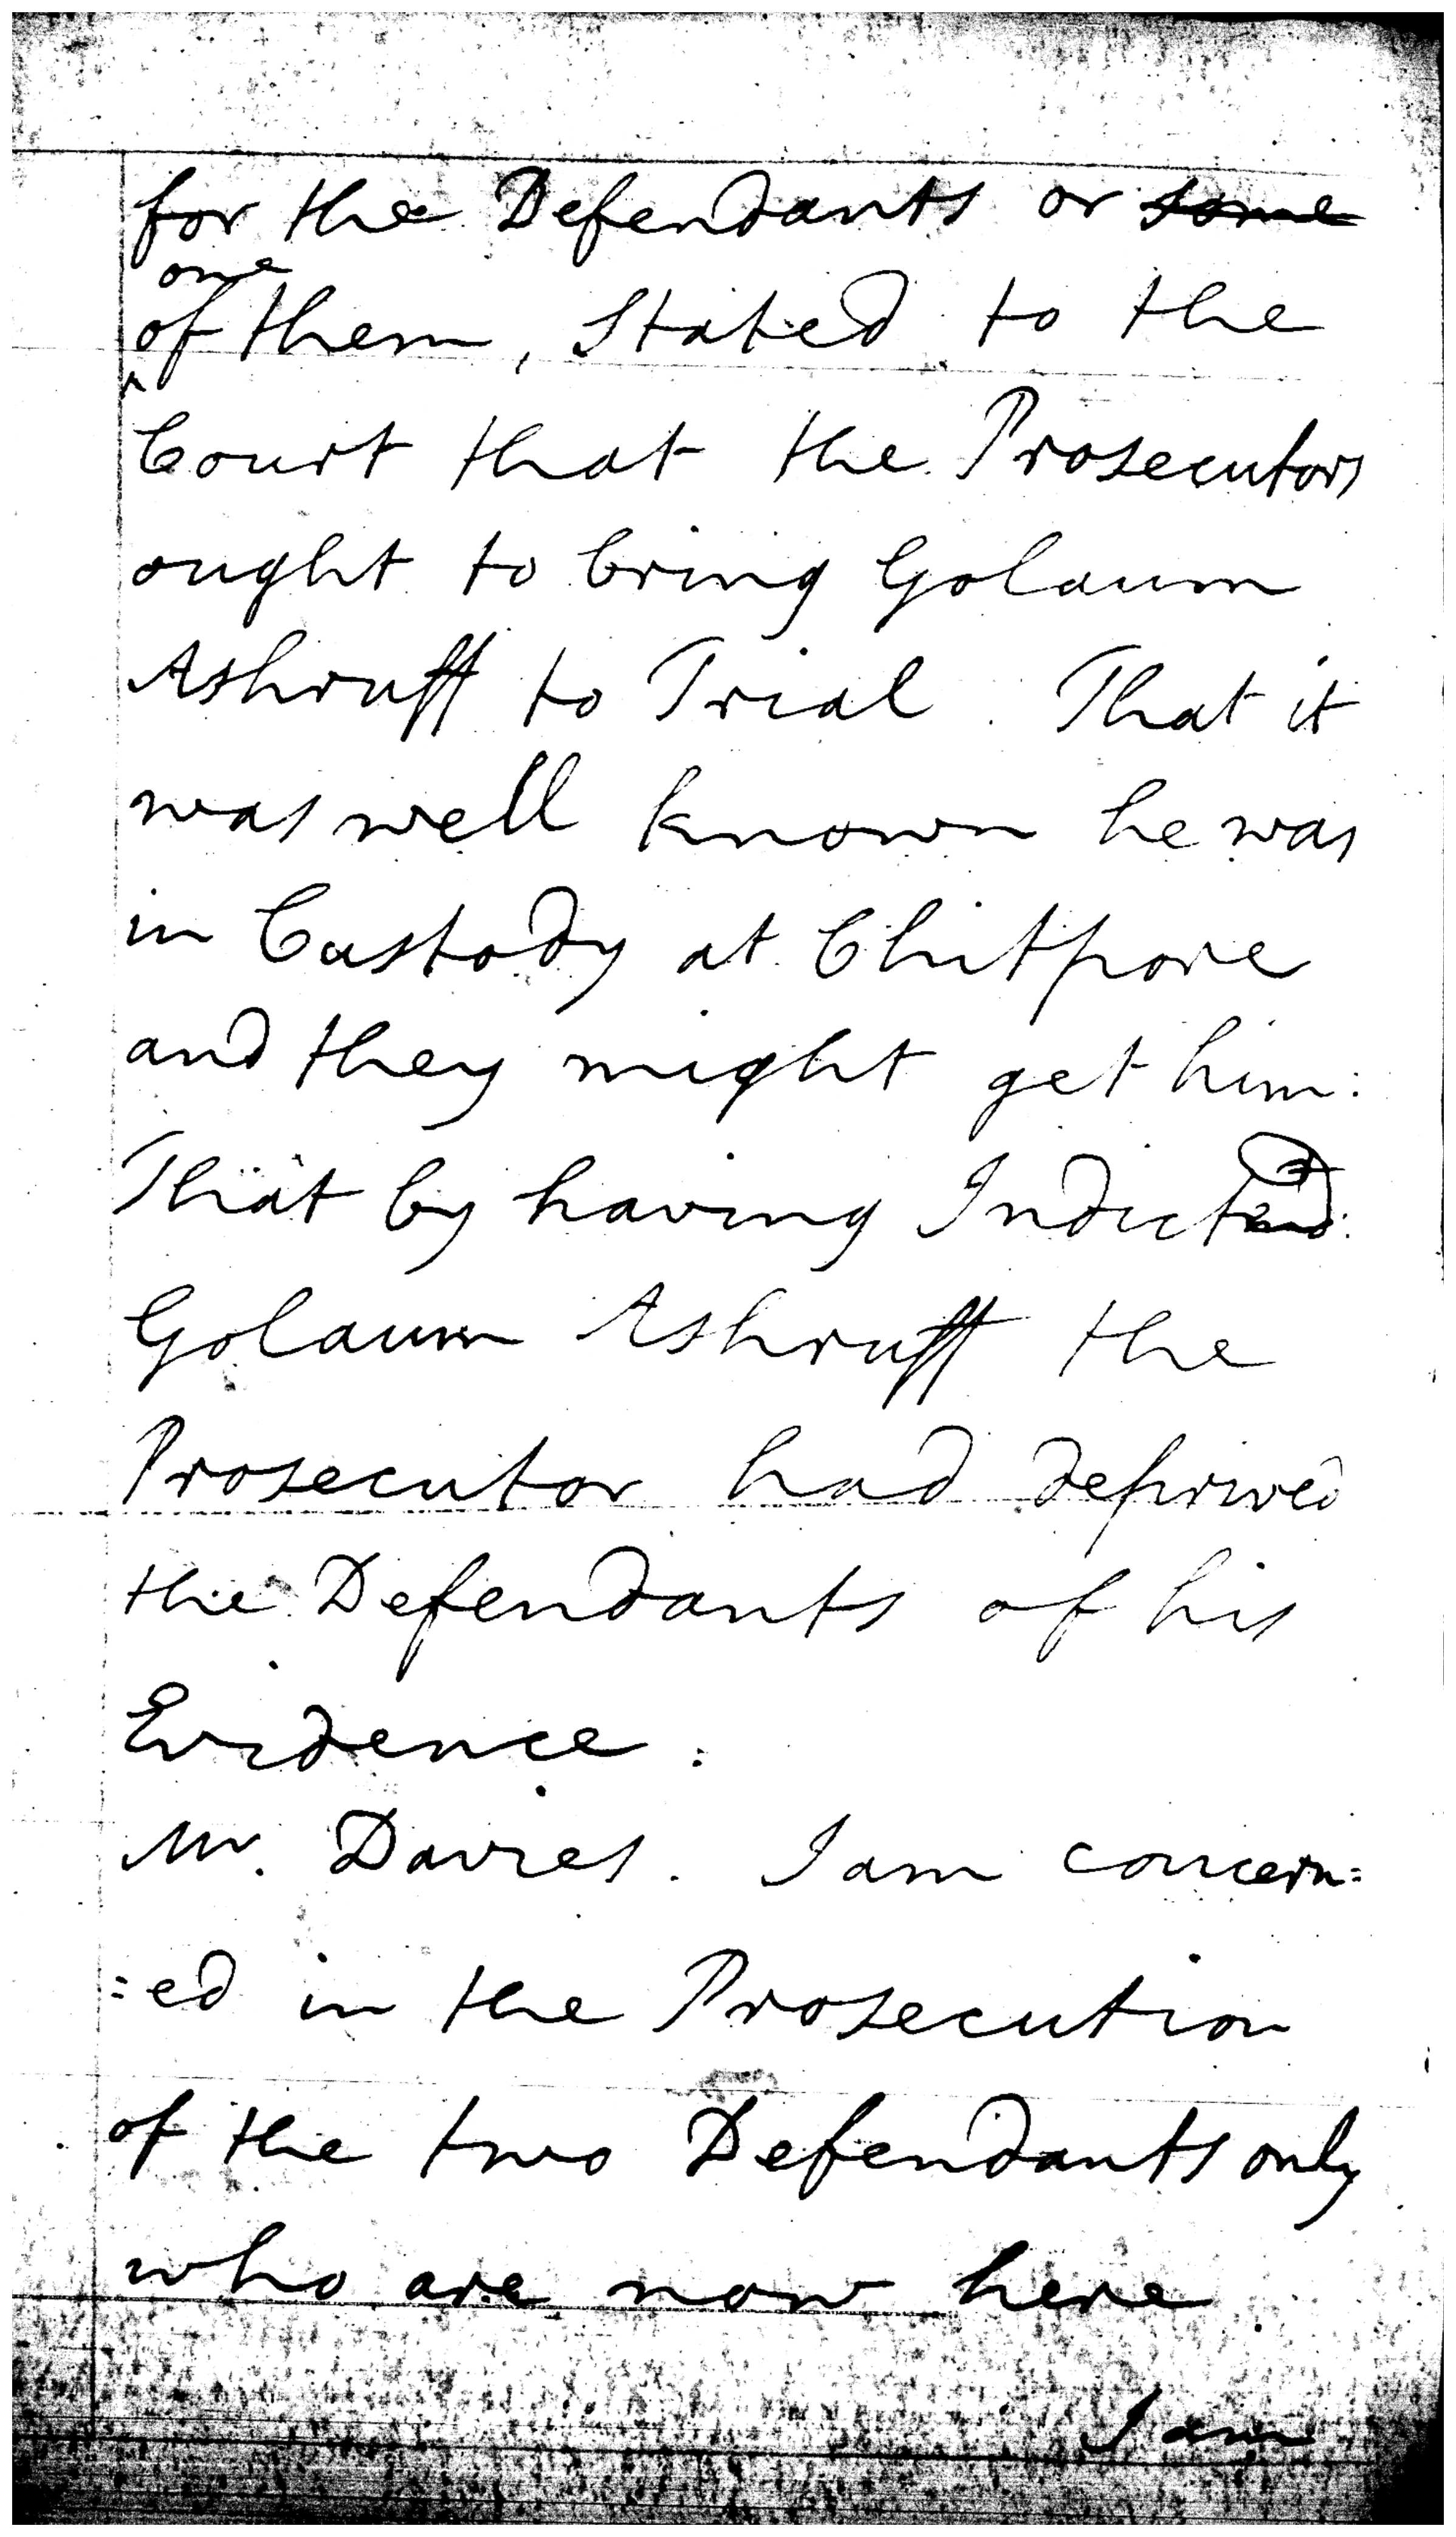 for the Defendants or some
one
of them, Stated to the
Court that the Prosecutors
ought to bring Golaum
Ashruff to Trial. That it
was well known he was
in Custody at Chitpore
and they might get him:
That by having Indicted:
Golaum Ashruff the
Prosecutor had deprived
the Defendants of his
Evidence:
Mr. Davies. I am concern=
=ed in the Prosecution
of the two Defendants only
who are now here
I am